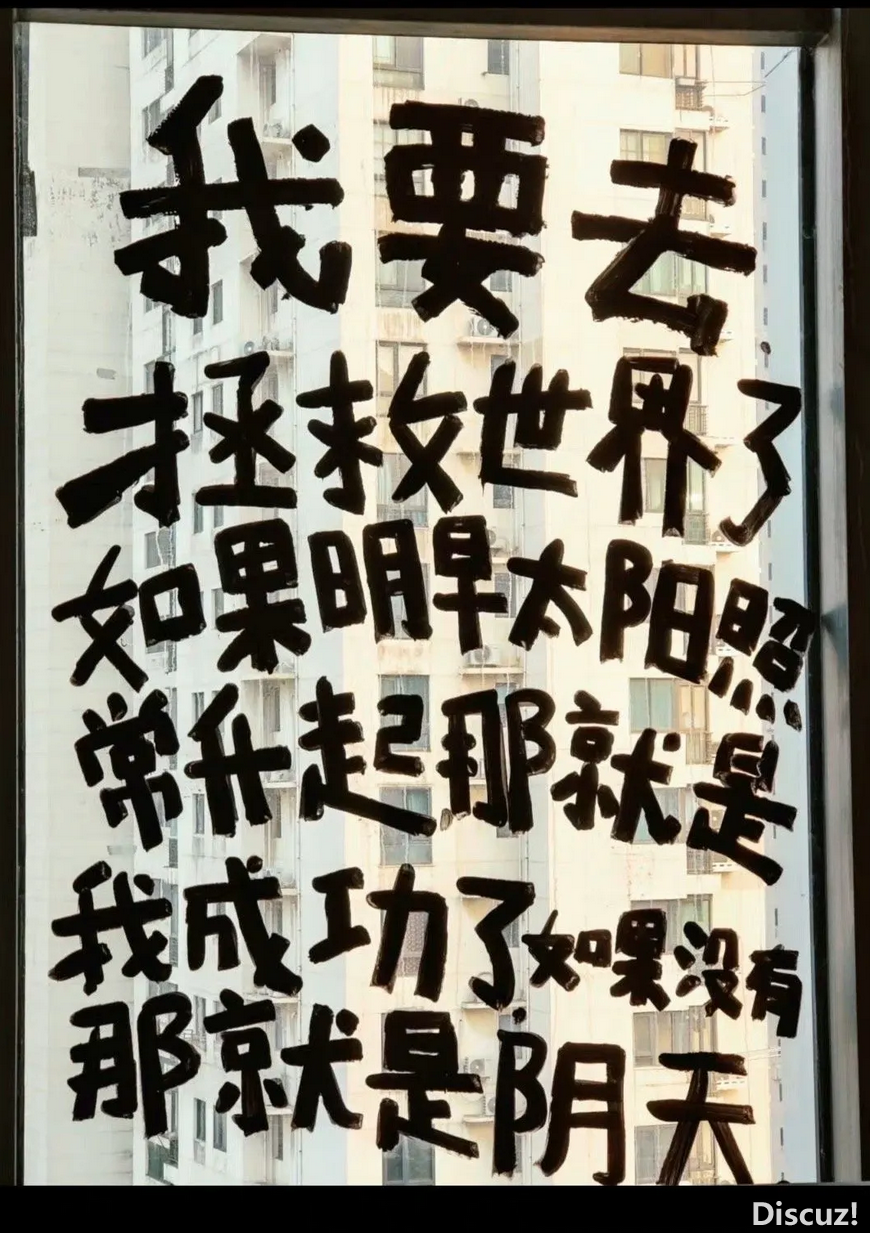 我要去
拯救世界了
如果明早太阳照
常升起那就是
我成功了如果没有
那就是阴天
Discuz!